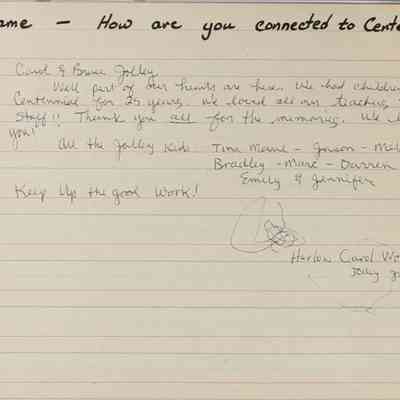 ame - How are you connected to Cente
Carol & Bruce Jolley
Well part of our hearts are here. We had children
Centennial for 25 years. We loved all our teachers
Staff!! Thank you all for the memories. We
you!
All the Jolley Kids Tina Marie - Jason - Mel
Bradley - Marc - Darren
Emily & Jennifer
Keep Up the good Work!
Harlow Carol We
Jolley